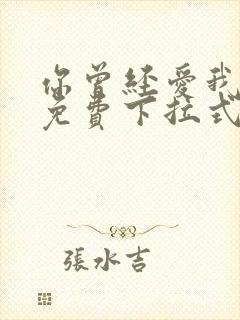 你曾经愛我
免費下拉式
張水吉